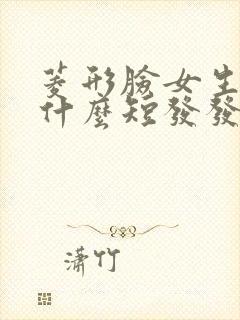 菱形臉女生
什麼短發發
瀟竹